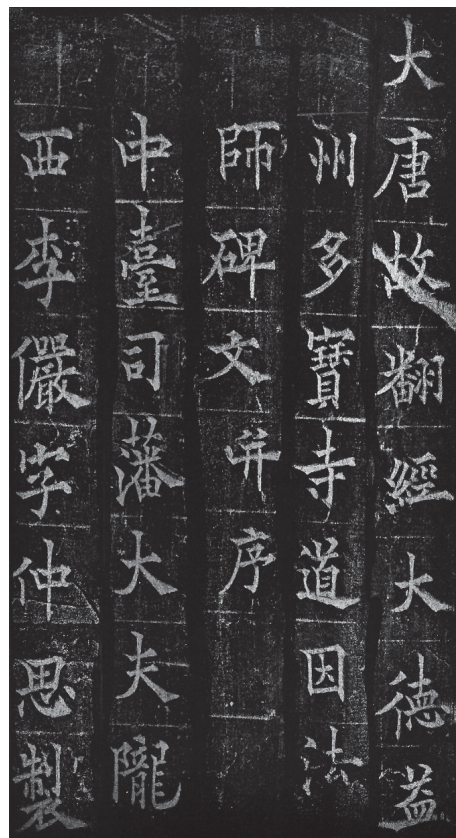 大唐故翻經大德益
州多寶寺道因法
師碑文并序
中臺司藩大夫隴
西李儼字仲思製